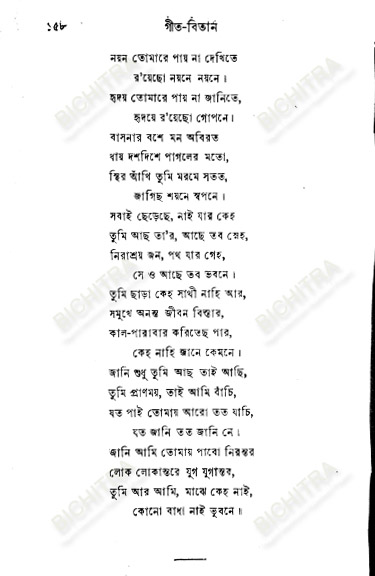 ১৫৮ গীত-বিতান
নয়ন তোমারে পায় না দেখিতে
র'য়েছো নয়নে নয়নে।
হৃদয় তোমারে পায় না জানিতে,
হৃদয়ে র'য়েছো গোপনে।
বাসনার বশে মন অবিরত
ধায় দশদিশে পাগলের মতো,
স্থির আঁখি তুমি মরমে সতত,
জাগিছ শয়নে স্বপনে।
সবাই ছেড়েছে, নাই যার কেহ
তুমি আছ তা'র, আছে তব স্নেহ,
নিরাশ্রয় জন, পথ যার গেহ,
সে ও আছে তব ভবনে।
তুমি ছাড়া কেহ সাথী নাহি আর,
সমুখে অনন্ত জীবন বিস্তার,
কাল-পারাবার করিতেছ পার,
কেহ নাহি জানে কেমনে।
জানি শুধু তুমি আছ তাই আছি,
তুমি প্রাণময়, তাই আমি বাঁচি,
যত পাই তোমায় আরো তত যাচি,
যত জানি তত জানি নে।
জানি আমি তোমায় পাবো নিরন্তর
লোক লোকান্তরে যুগ যুগান্তর,
তুমি আর আমি, মাঝে কেহ নাই,
কোনো বাধা নাই ভুবনে॥
BICHITRA
BICHITRA
BICHITRA
BICHITRA
BICHITRA
BICHITRA
BICHITRA
BICHITRA